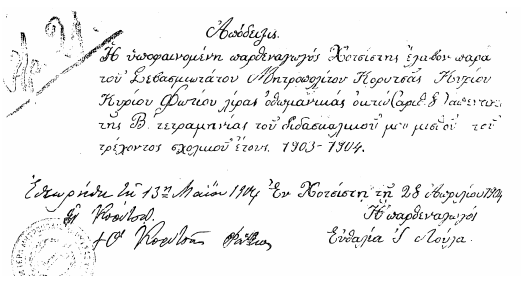 Ἀρ. 21.
Ἀπόδειξις.
Ἡ ὑποφαινομένη παρθεναγωγός Χοτσίστης ἔλαβον παρὰ
τοῦ Σεβασμιωτάτου Μητροπολίτου Κορυτσᾶς Κυρίου
Κυρίου Φωτίου λίρας ὀθωμανικάς ὀκτώ (ἀριθ. 8) ἀπέναντι
τῆς Β. τετραμηνίας τοῦ διδασκαλικοῦ μου μισθοῦ τοῦ
τρέχοντος σχολικοῦ ἔτους 1903-1904.
Ἐθεωρήθη τῇ 13ῃ Μαΐου 1904 Ἐν Χοτσίστῃ τῇ 28 Ἀπριλίου 1904
Ἡ παρθεναγωγός
† Ὁ Κορυτσᾶς Φώτιος Εὐθαλία